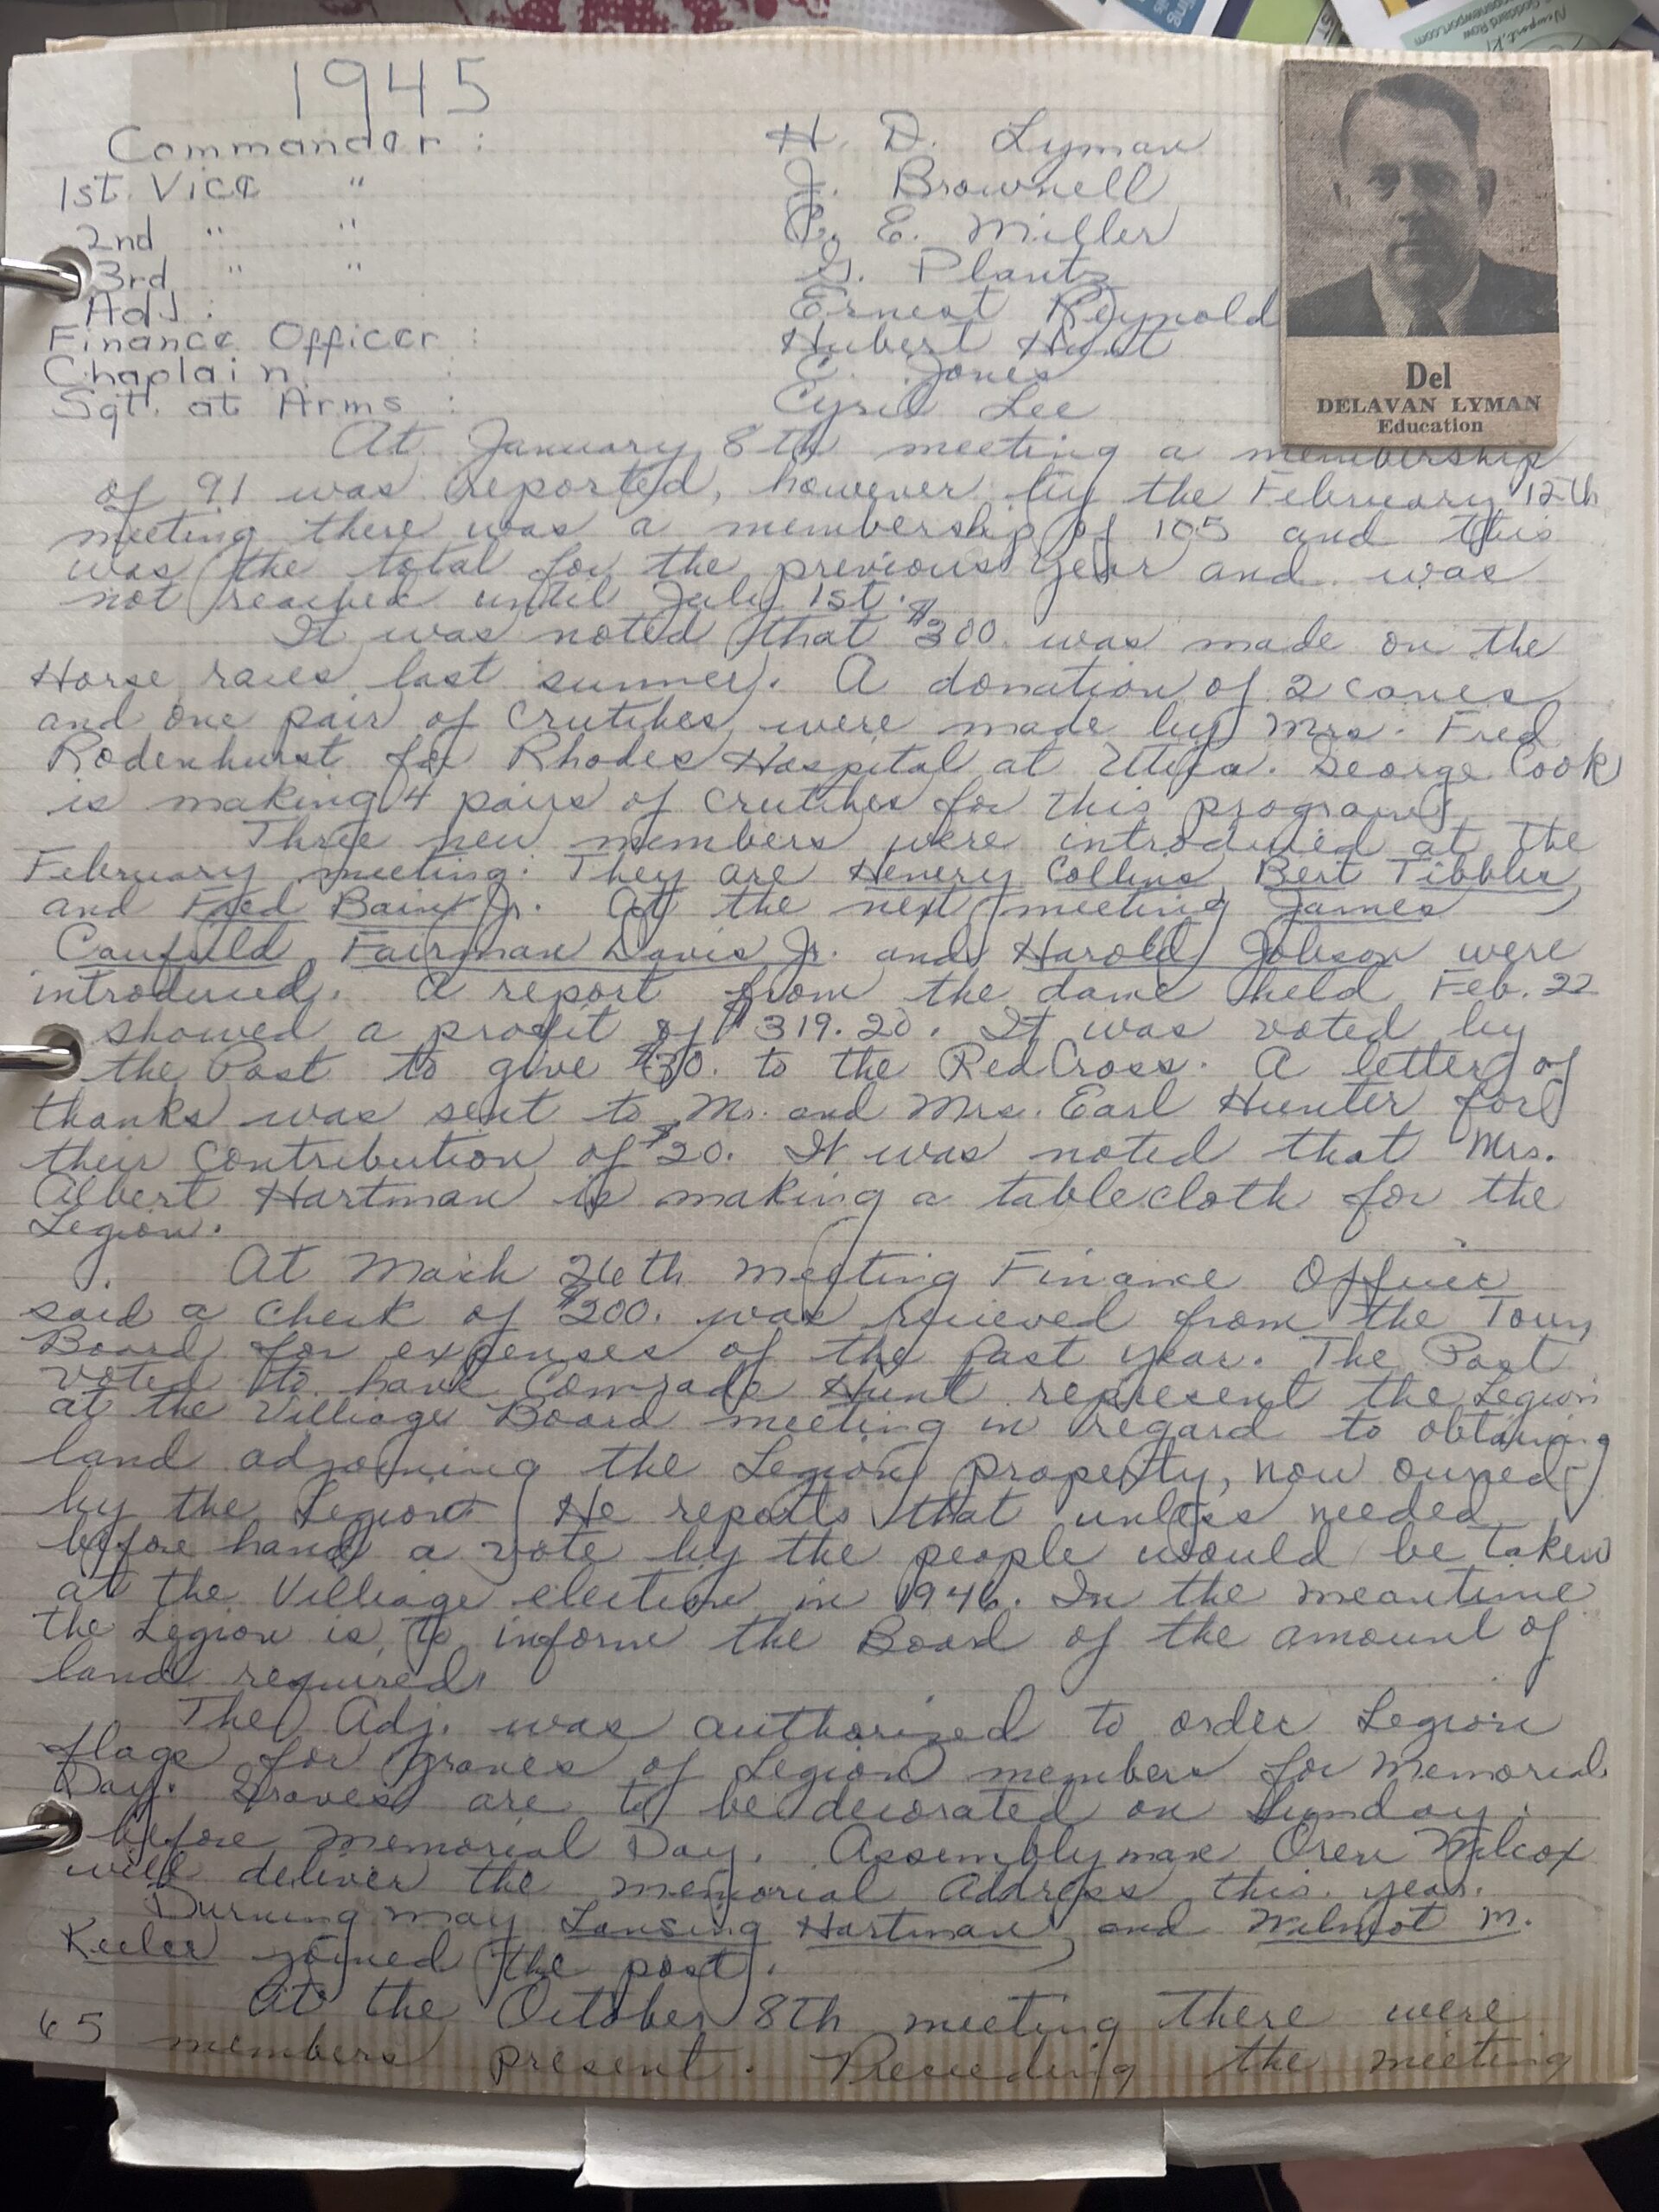 1945
Commander : H. D. Lyman
1st. Vice " J. Brownell
2nd " " P. E. Miller
3rd " " G. Plantz
Adj. : Ernest Reynold
Finance Officer : Hubert Hunt
Chaplain : E. Jones
Sgt. at Arms : Cyril Lee
Del
DELAVAN LYMAN
Education
At January 8th meeting a membership
of 91 was reported, however by the February 12th
meeting there was a membership of 105 and this
was the total for the previous year and was
not reached until July 1st.
It was noted that $300. was made on the
Horse races last summer. A donation of 2 canes
and one pair of crutches were made by Mrs. Fred
Rodenhurst for Rhodes Hospital at Utica. George Cook
is making 4 pairs of crutches for this program.
Three new members were introduced at the
February meeting. They are Henery Collins, Bert Tibbles,
and Fred Jr. At the next meeting James
Caufield, Fairman Davis Jr. and Harold Jobson were
introduced. A report from the dance held Feb. 22
showed a profit of $319.20. It was voted by
the Post to give $30. to the Red Cross. A letter of
thanks was sent to Mr. and Mrs. Earl Hunter for
their contribution of $20. It was noted that Mrs.
Albert Hartman is making a tablecloth for the
Legion.
At March 26th meeting Finance Officer
said a check of $200. was recieved from the Town
Board for expenses of the past year. The Post
voted to have Comrade Hunt represent the Legion
at the Villiage Board meeting in regard to obtaining
land adjoining the Legion property, now owned
by the Legion. He reports that unless needed
before hand a vote by the people would be taken
at the Villiage election in 1946. In the meantime
the Legion is to inform the Board of the amount of
land required.
The Adj. was authorized to order Legion
flags for graves of Legion members for Memorial
Day. Graves are to be decorated on Sunday
before Memorial Day. Assemblyman Oren Wilcox
will deliver the Memorial Address this year.
Durning May Lansing Hartman, and Wilmot M.
Keeler joined the post.
At the October 8th meeting there were
65 members present. Preceeding the meeting
Goddard Row
Newport, RI